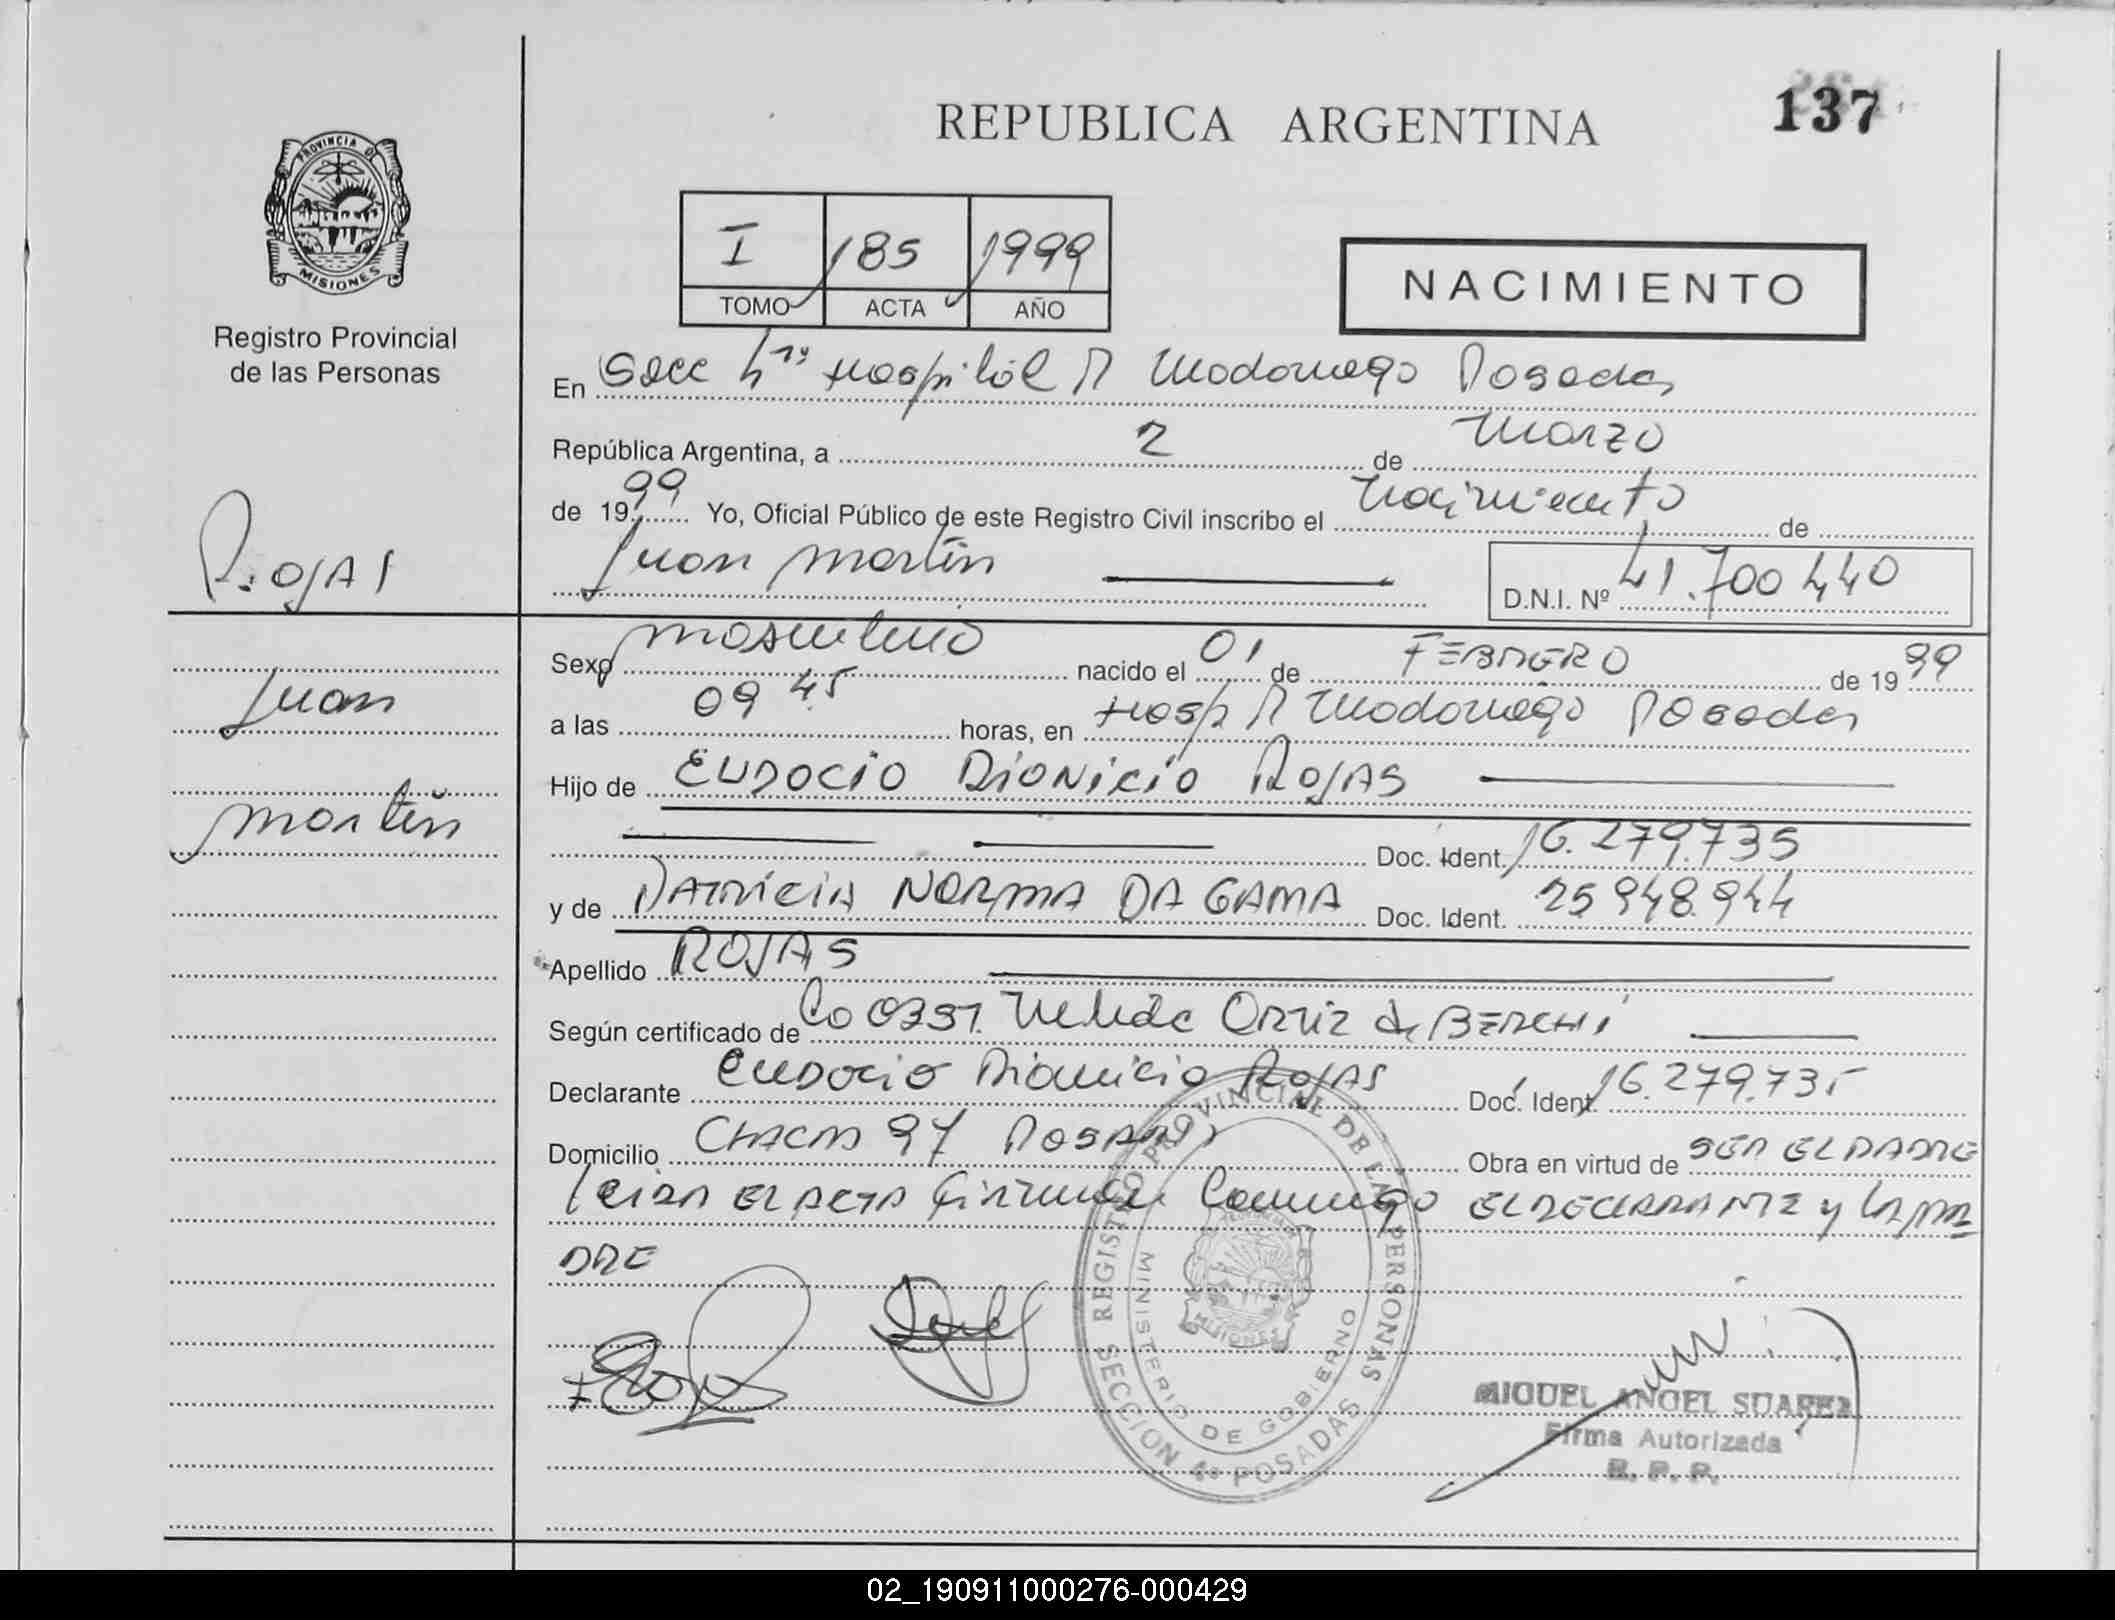 REPUBLICA ARGENTINA
137
PROVINCIA DE
MISIONES
Registro Provincial
de las Personas
I 185 1999
TOMO ACTA AÑO
NACIMIENTO
En Secc 4ta Hospital R Madariaga Posadas
República Argentina, a 2 de Marzo
de 1999 Yo, Oficial Público de este Registro Civil inscribo el nacimiento de
Juan Martín
D.N.I. Nº 41.700440
ROJAS
Juan
Martín
Sexo masculino nacido el 01 de FEBRERO de 1999
a las 09 45 horas, en Hosp R Madariaga Posadas
Hijo de EUDOCIO DIONICIO ROJAS
Doc. Ident. 16.279.735
y de PATRICIA NORMA DA GAMA Doc. Ident. 25948.944
Apellido ROJAS
Según certificado de Co 0331. Nelida Ortiz de BERCHI
Declarante EUDOCIO Dionicio ROJAS Doc. Ident. 16.279.735
Domicilio CHACRA 97 POSADAS Obra en virtud de SER EL PADRE
leída EL ACTA firman Conmigo EL DECLARANTE y LA MA
DRE
REGISTRO PROVINCIAL DE LAS PERSONAS
MINISTERIO DE GOBIERNO
MISIONES
SECCION 4ª POSADAS
MIGUEL ANGEL SUAREZ
Firma Autorizada
R. P. P.
02_190911000276-000429